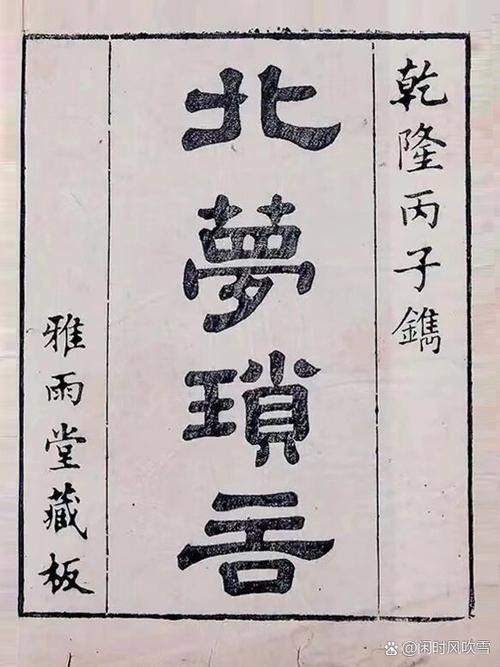 乾隆丙子鐫
北夢瑣言
雅雨堂藏板
@闲时风吹雪